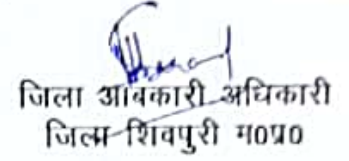 जिला आबकारी अधिकारी
जिला शिवपुरी म०प्र०